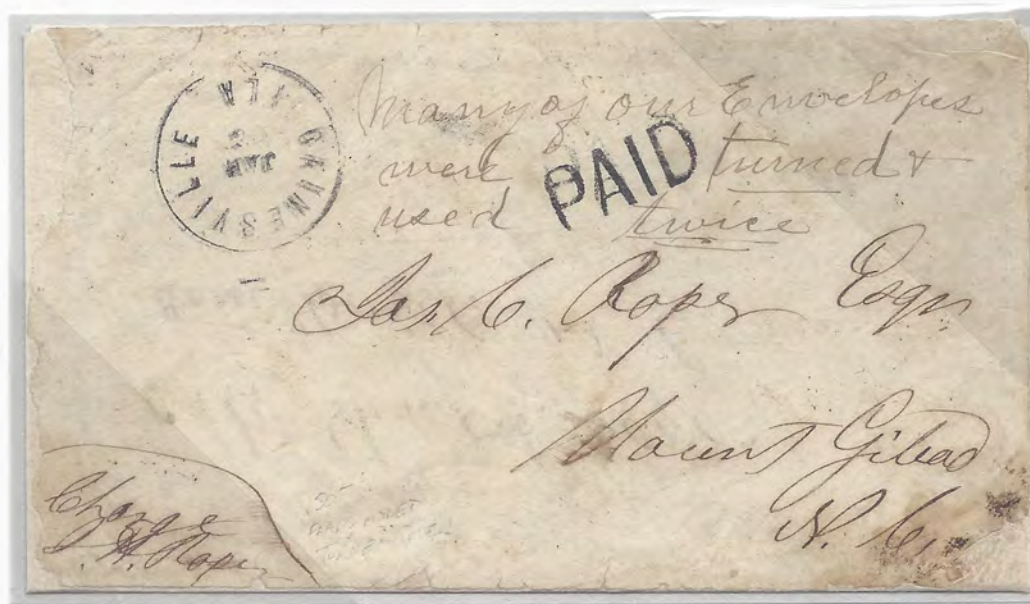 GAINESVILLE ALA
JAN
Many of our Envelopes
were turned &
used twice
PAID
Jas. C. Roper Esqr.
Mount Gilead
N. C.
Charge
H. Roper